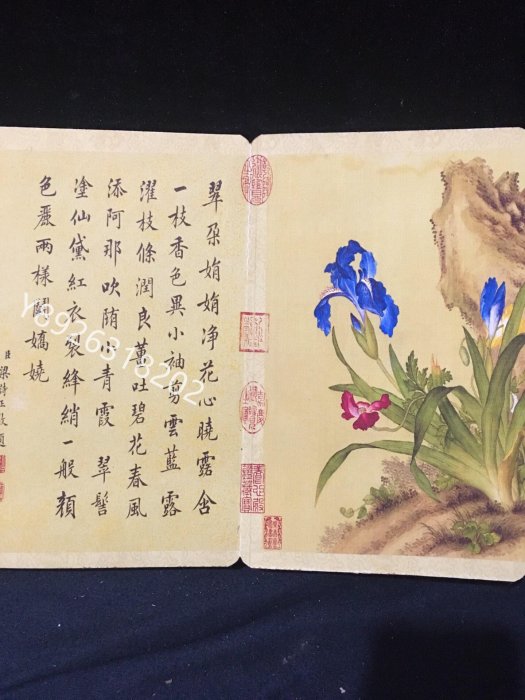 翠朶娟娟净花心曉露含
一枝香色異小袖剪雲藍露
濯枝條潤良薰吐碧花春風
添阿那吹隋小青霞 翠髻
塗仙黛紅衣裳絳綃一般顏
色嚴兩樣鬪嬌嬈
臣梁詩正敬題
Y8926318202